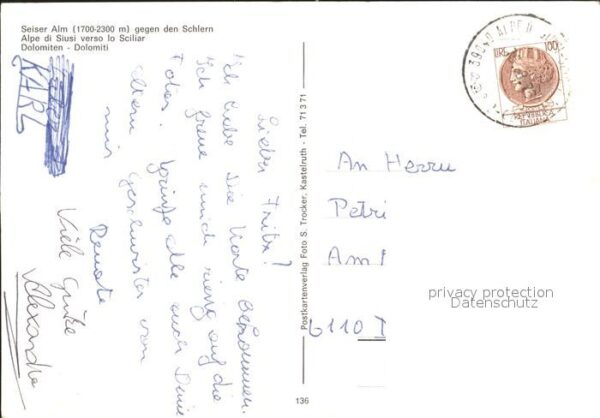 Seiser Alm (1700-2300 m) gegen den Schlern
Alpe di Siusi verso lo Sciliar
Dolomiten - Dolomiti
KARL
Lieber Fritz!
Ich habe die Karte bekommen.
Ich freue mich riesig auf die
Grüße alle auch Deine
Eltern
Geschwister von
mir
Renate
Viele Grüße
Alexandra
Postkartenverlag Foto S. Trocker, Kastelruth - Tel. 71371
136
39040 ALPE D
LIRE 100
ITALIANA
An Herrn
Petri
Am
6110
privacy protection
Datenschutz